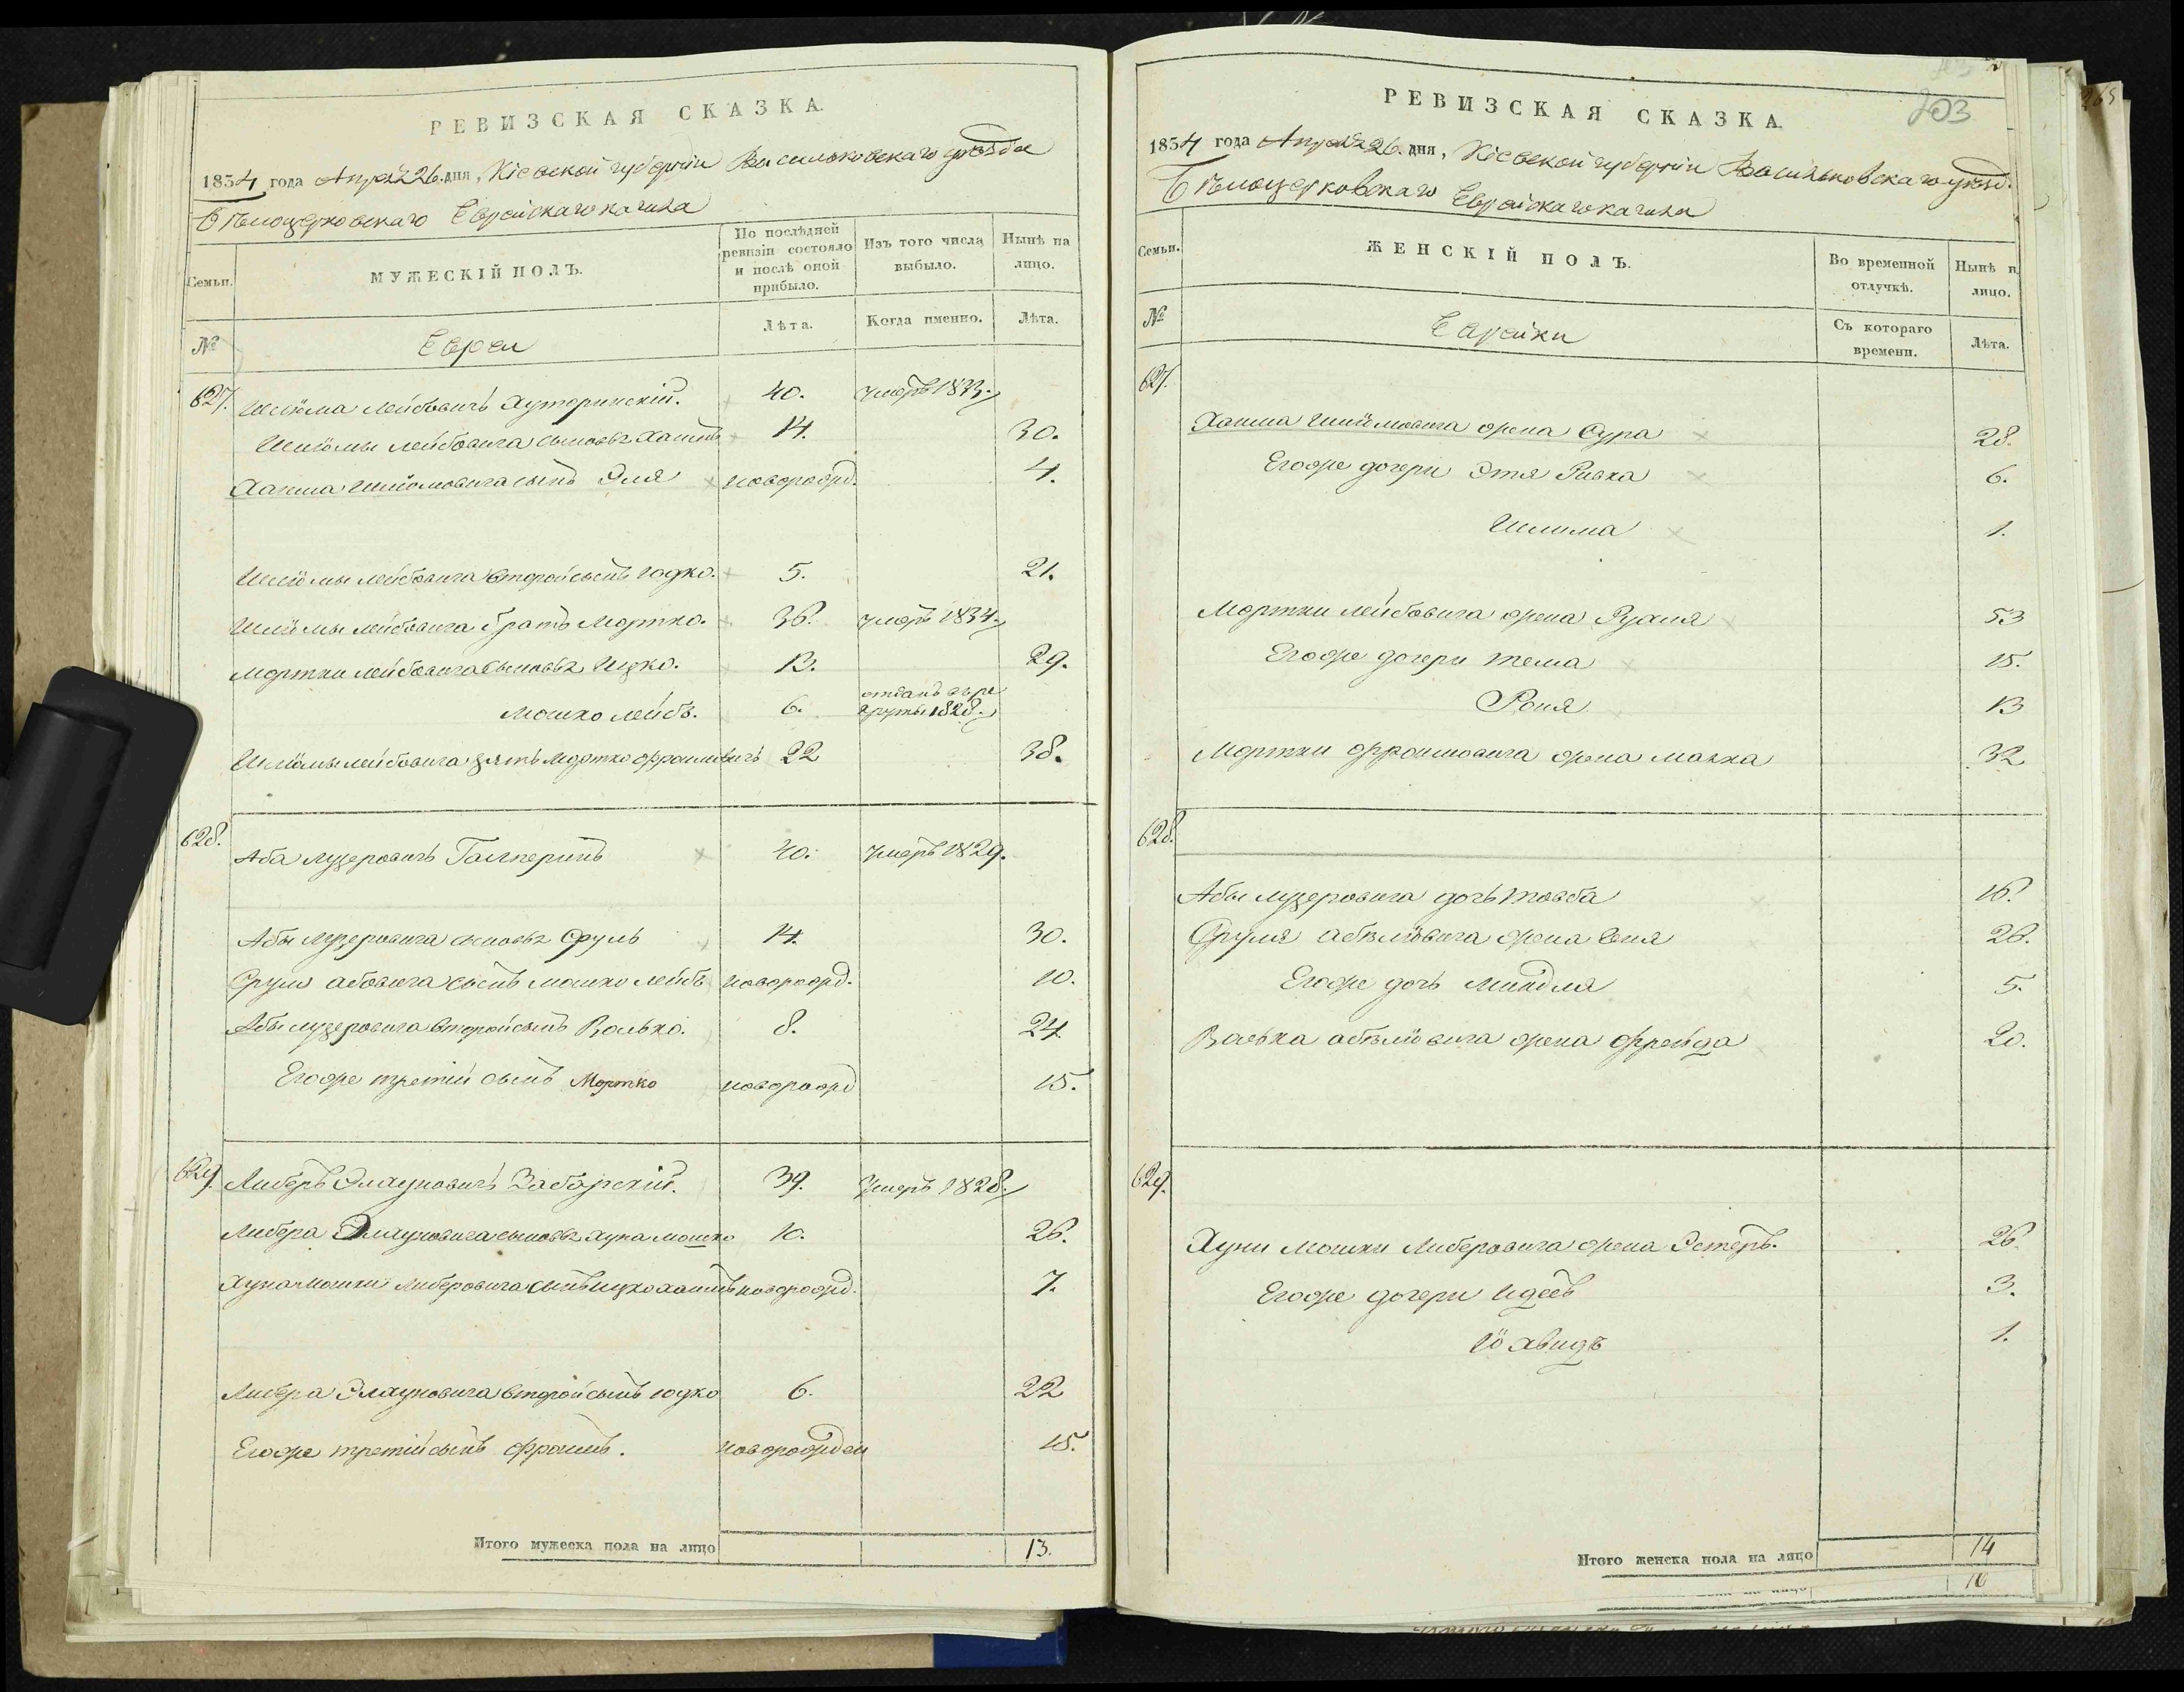 РЕВИЗСКАЯ СКАЗКА.
1834 года Апрѣля 26. дня, Кіевской губерніи Васильковскаго уѣзда
Бѣлоцерковскаго Еврейскаго кагала
Семьи.
МУЖЕСКІЙ ПОЛЪ.
По послѣдней ревизіи состояло и послѣ оной прибыло.
Изъ того числа выбыло.
Нынѣ на лицо.
№
Евреи
Лѣта.
Когда именно.
Лѣта.
627. Шліома Лейбовичъ Хуторинскій. 40. умеръ 1833.
Шліомы Лейбовича сыновья Хаимъ 14. 30.
Хаима Шліомовича сынъ Эля новорожд. 4.
Шліомы Лейбовича второй сынъ Юдко. 5. 21.
Шліомы Лейбовича братъ Мортко. 36. умеръ 1834.
Мортки Лейбовича сыновья Ицко. 13. 29.
Мошко Лейбъ. 6. отданъ въ ре
круты 1828.
Шліомы Лейбовича зять Мортко Фроимовичъ 22 38.
628. Аба Лузеровичъ Галперинъ 40. умеръ 1829.
Абы Лузеровича сыновья Сруль 14. 30.
Сруля Абовича сынъ Мошко Лейбъ новорожд. 10.
Абы Лузеровича второй сынъ Волько. 8. 24.
Егоже третій сынъ Мортко новорожд 15.
629. Либеръ Элхуновичъ Забарскій. 39. умеръ 1828.
Либера Элхуновича сыновья Хуна Мошко 10. 26.
Хуна Мошки Либеровича сынъ Ицко Хаимъ новорожд. 7.
Либера Элхуновича второй сынъ Юдко 6. 22
Егоже третій сынъ Фроимъ. новорожден 15.
Итого мужеска пола на лицо 13.
203
РЕВИЗСКАЯ СКАЗКА.
1834 года Апрѣля 26. дня, Кіевской губерніи Васильковскаго уѣзд.
Бѣлоцерковскаго Еврейскаго кагала
Семьи.
ЖЕНСКІЙ ПОЛЪ.
Во временной отлучкѣ.
Нынѣ н лицо.
№
Еврейки
Съ котораго времени.
Лѣта.
627.
Хаима Шліомовича жена Сура 28.
Егоже дочери Этя Ривка 6.
Шлима 1.
Мортки Лейбовича жена Рухля 53
Егоже дочери Тема 15.
Роня 13
Мортки Фроимовича жена Малка 32
628.
Абы Лузеровича дочь Товба 16.
Сруля Абѣлiовича жена Сеня 26.
Егоже дочь Миндля 5.
Волька Абѣлiовича жена Фрейда 20.
629.
Хуни Мошки Либеровича жена Эстеръ. 26.
Егоже дочери Идесъ 3.
Іохвидъ 1.
Итого женска пола на лицо 14
16
265